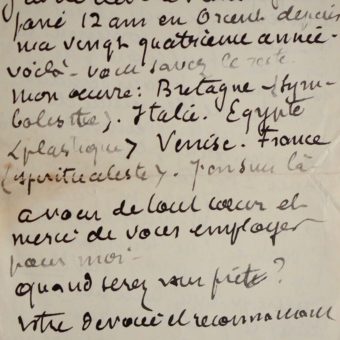 passé 12 ans en Orient depuis
ma vingt quatrieme année -
voilà - vous savez le reste
mon œuvre : Bretagne (Sym-
boliste). Italie. Egypte
(plastique) Venise. France
(spiritualiste).
a vous de tout cœur et
merci de vous employer
pour moi -
quand serez vous prête ?
votre dévoué et reconnaissant